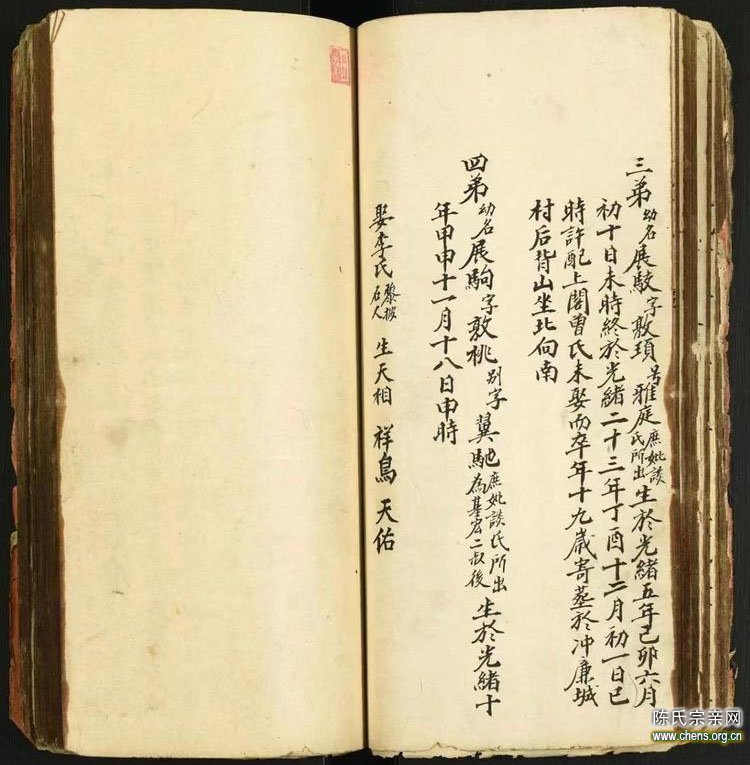 三弟幼名展駿字敦頊号雅庭庶妣談氏所出生於光緒五年己卯六月
初十日未時終於光緒二十三年丁酉十二月初一日巳
時許配上閣曹氏未娶而卒年十九歲寄塟於冲廉城
村后背山坐北向南
四弟幼名展駒字敦桃别字翼馳庶妣談氏所出為基宏二叔後生於光緒十
年甲申十一月十八日申時
娶李氏石人生天相 祥鳥 天佑
陈氏宗亲网
www.chens.org.cn